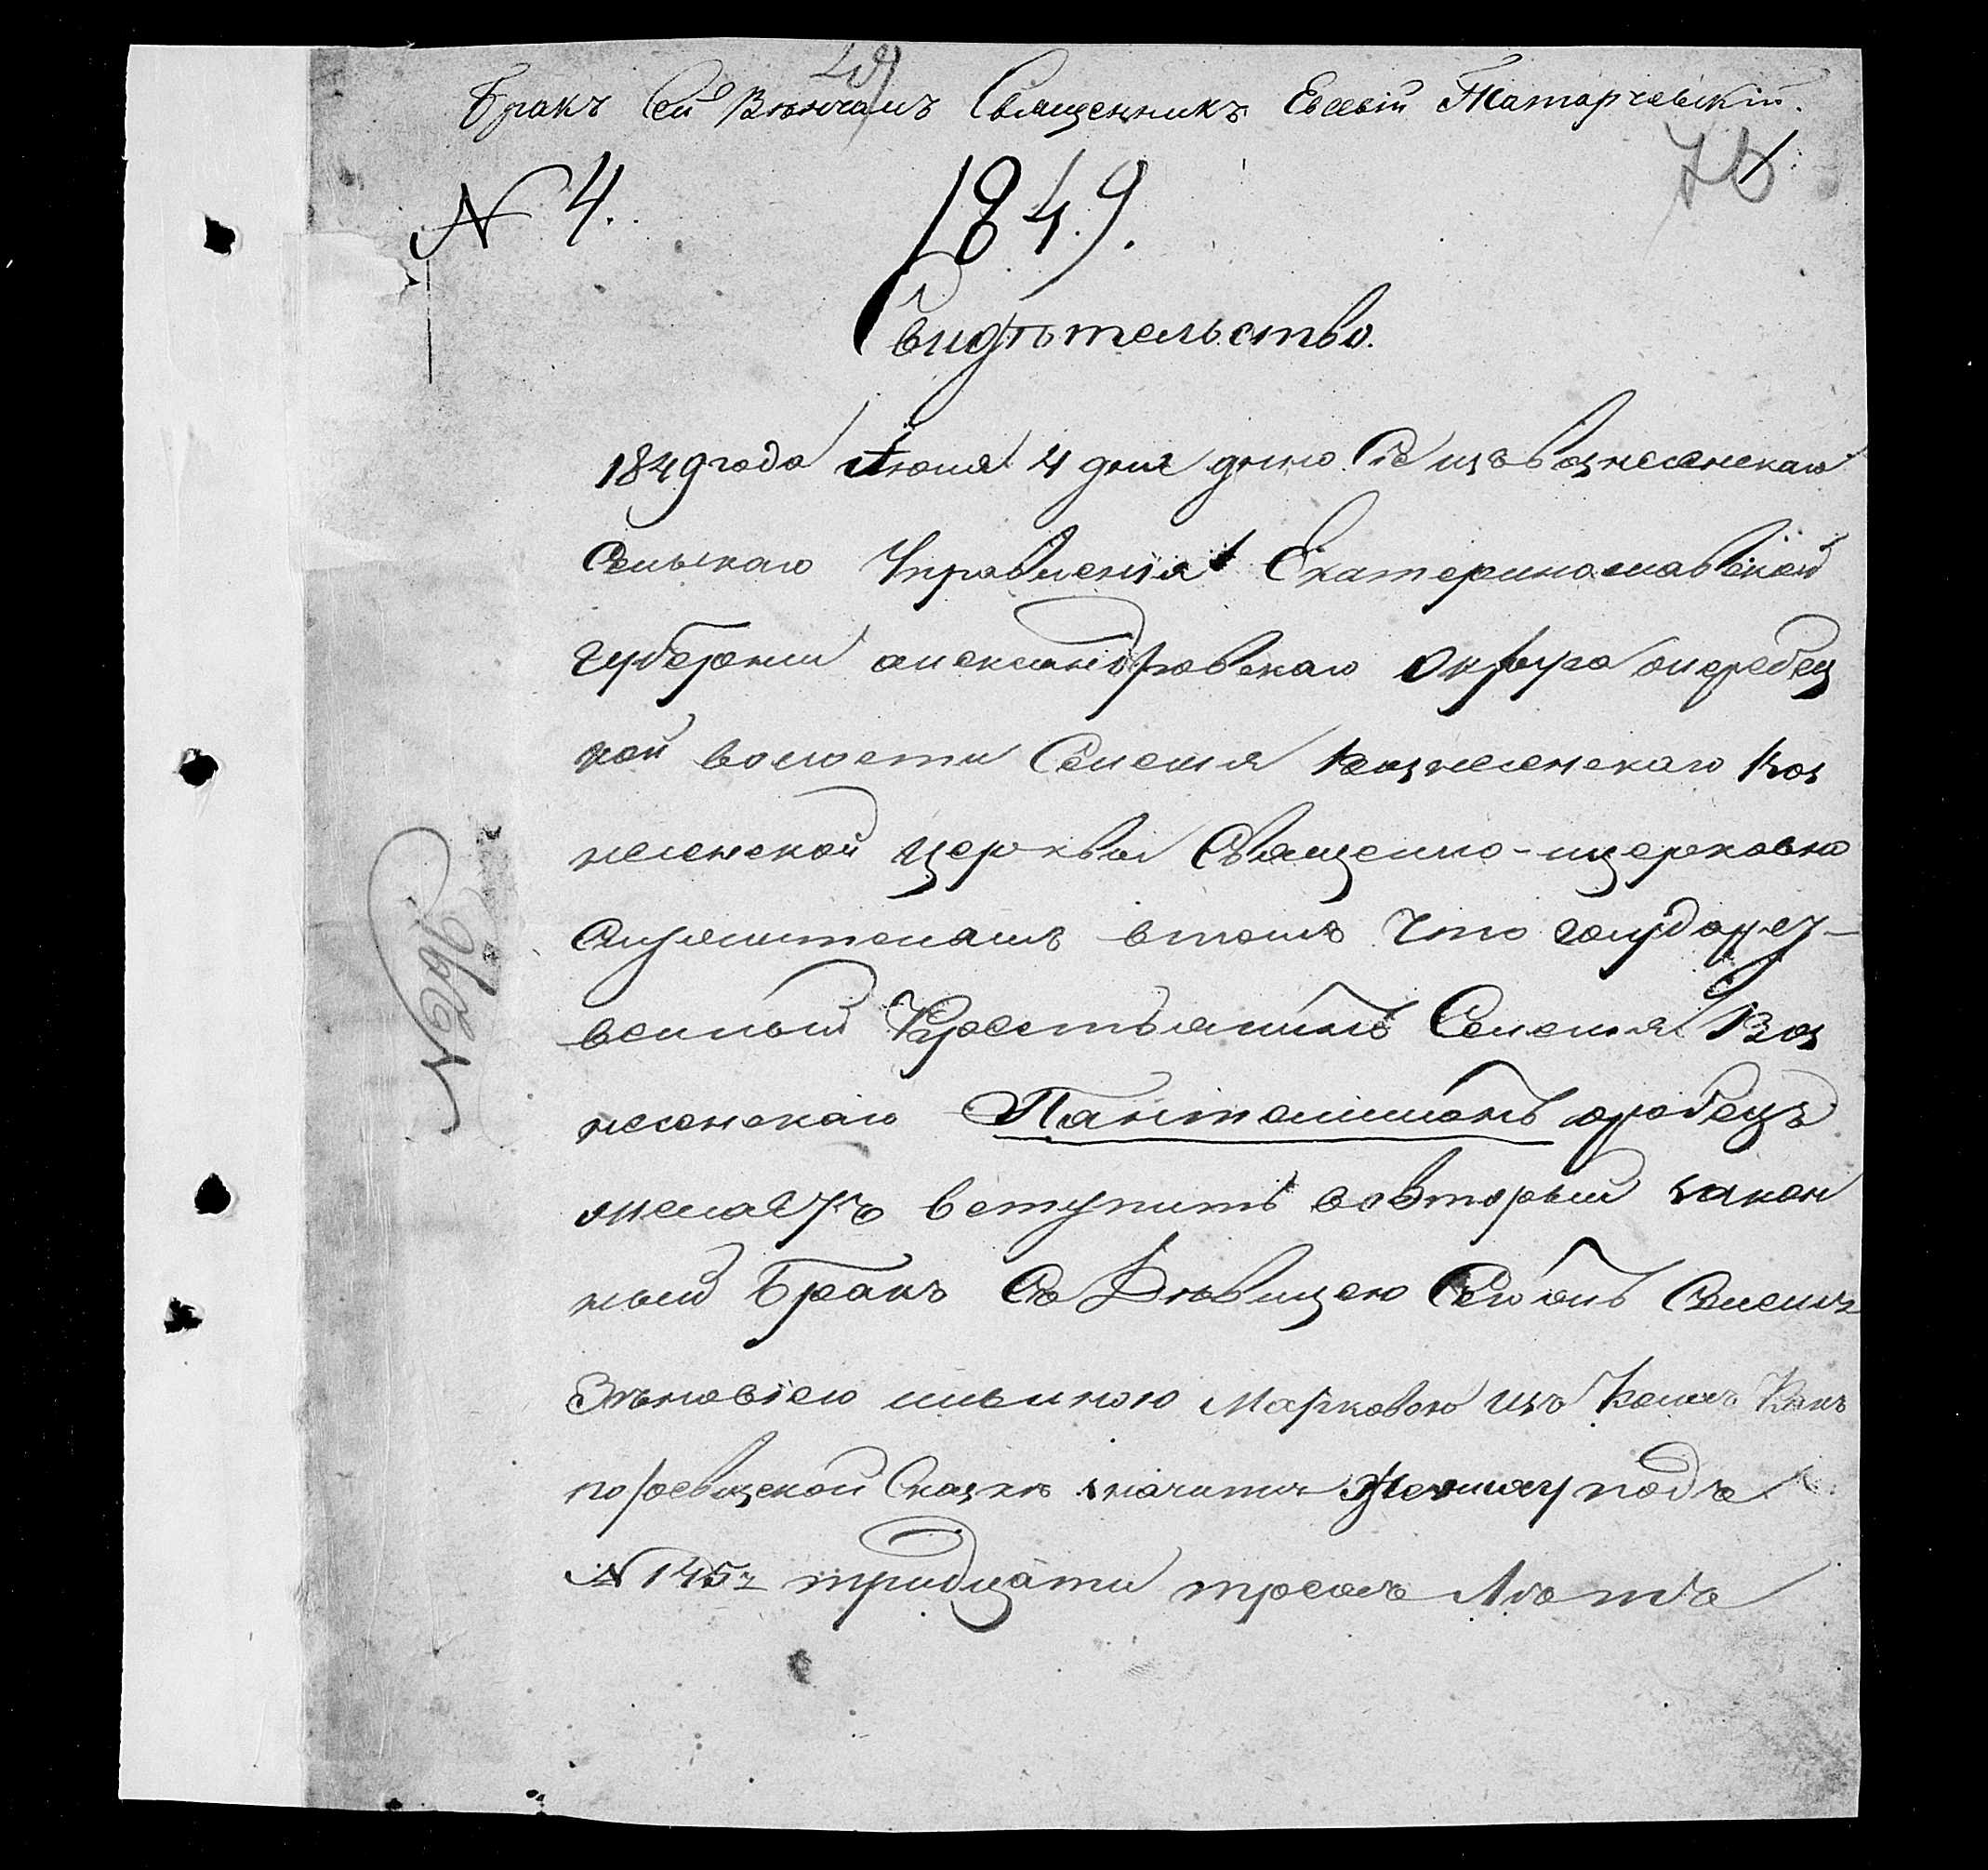 Бракъ Сей Вѣнчалъ Священникъ Евсевій Татарчевскій.
N 4.
1849.
Свидѣтельство.
1849 года Июня 4 дня дано Сіе изъ Вознесенскаго
Сельскаго Управленія Екатеринославской
губерніи александровскаго Округа
кой волости Селенія Вознесенскаго Воз
несенской церквы Священно-церковно
Служителамъ втомъ Что
венный Крестьянинъ Селенія Воз
несенскаго Пантелимонъ
желаетъ вступить вовторый закон
ный Бракъ Съ Дѣвицею Селенія
Зѣновіею ильиною Марковою изъ Коихъ Какъ
поревизской Сказкѣ значится Жениху подъ
N 145 тридцати трехъ Лѣтъ
N 296